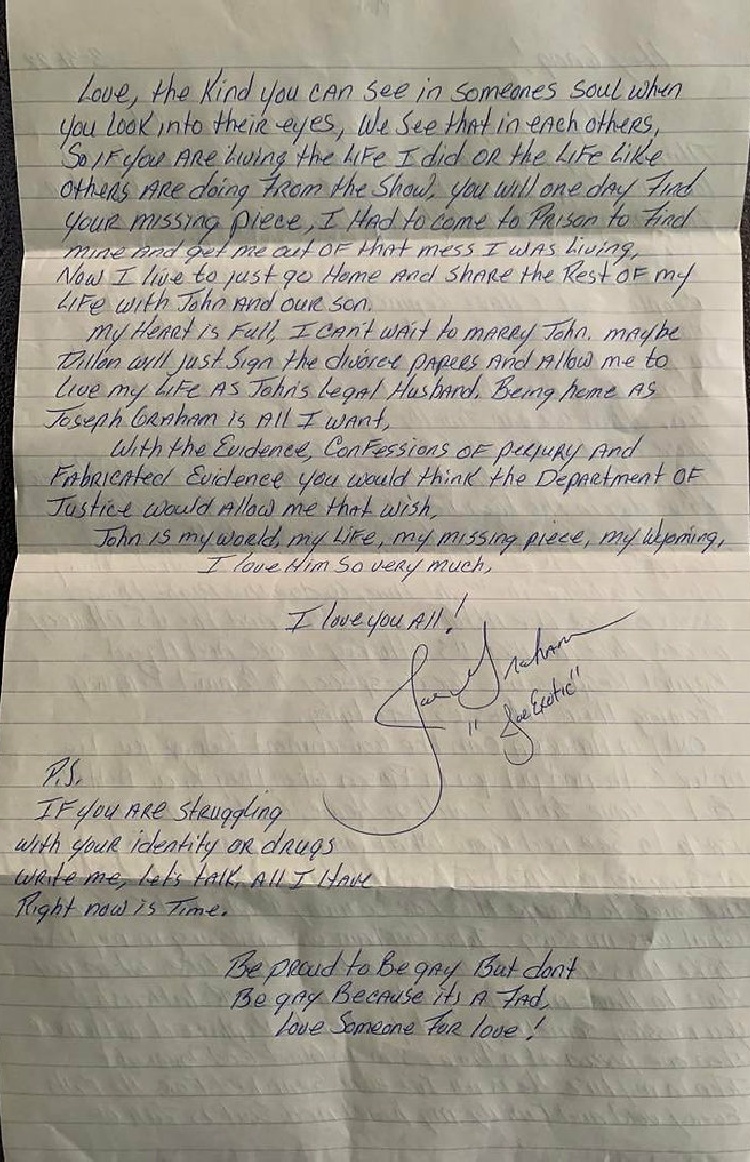 Love, the Kind you can see in someones soul when
you look into their eyes, We see that in each others,
So IF you ARE Living the LIFE I did OR the LIFE Like
others ARE doing From the Show, you will one day Find
your missing piece, I Had to come to Prison to Find
mine and get me out OF that mess I was living,
Now I live to just go Home And share the Rest OF my
LIFE with John And our son.
My Heart is Full, I can't wait to marry John. maybe
Dillon will just Sign the divorce papers And Allow me to
Live my LIFE As John's Legal Husband. Being home As
Joseph Graham is All I want,
With the Evidence, Confessions of perjury And
Fabricated Evidence you would think the Department OF
Justice would Allow me that wish,
John is my world, my Life, my missing piece, my Wyoming,
I love Him So very much,
I love you All!
Joe Graham
"Joe Exotic"
P.S.
IF you ARE struggling
with your identity or drugs
write me, Let's talk. All I Have
Right now is Time.
Be proud to Be gay But dont
Be gay Because its A Fad,
Love Someone For love!